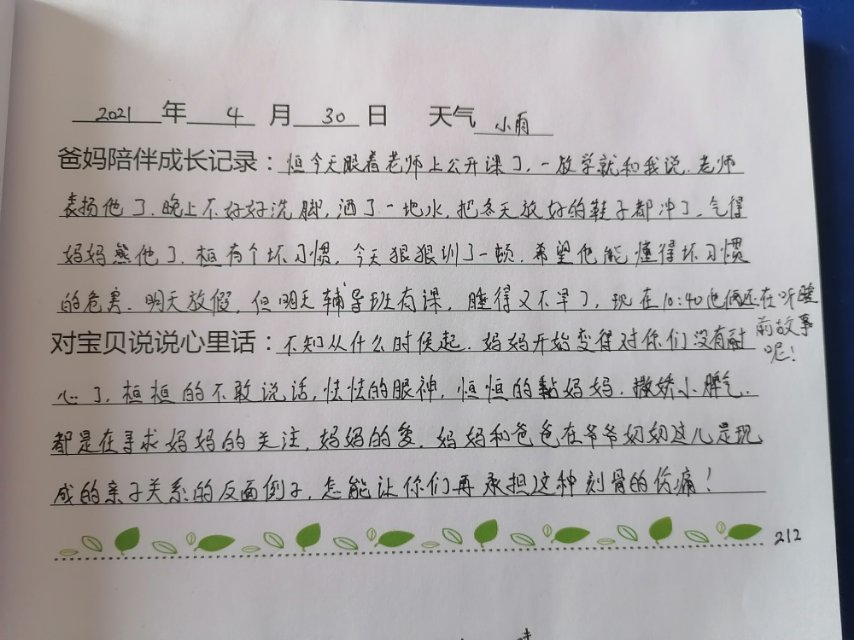 2021 年 4 月 30 日 天气 小雨
爸妈陪伴成长记录：恒今天跟着老师上公开课了，一放学就和我说，老师
表扬他了，晚上不好好洗脚，洒了一地水，把冬天放好的鞋子都冲了，气得
妈妈熊他了，桓有个坏习惯，今天狠狠训了一顿，希望他能懂得坏习惯
的危害，明天放假，但明天辅导班有课，睡得又不早了，现在10:40他俩还在听睡
前故事
呢！
对宝贝说说心里话：不知从什么时候起，妈妈开始变得对你们没有耐
心了，桓桓的不敢说话，怯怯的眼神，恒恒的黏妈妈，撒娇小脾气，
都是在寻求妈妈的关注，妈妈的爱，妈妈和爸爸在爷爷奶奶这儿是现
成的亲子关系的反面例子，怎能让你们再承担这种刻骨的伤痛！
212